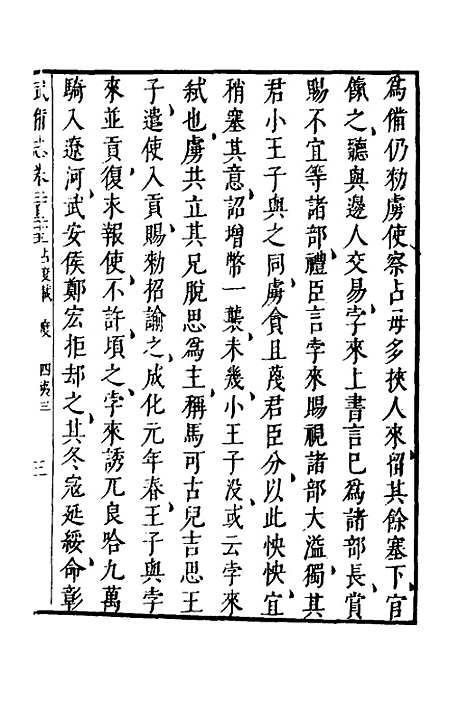 爲備仍勑虜使察占毋多挾人來留其餘塞下官
餼之聽與邊人交易孛來上書言已爲諸部長賞
賜不宜等諸部禮臣言孛來賜視諸部大溢獨其
君小王子與之同虜貪且蔑君臣分以此怏怏宜
稍塞其意詔增幣一襲未幾小王子没或云孛來
弑也虜共立其兄脫思爲主稱馬可古兒吉思王
子遣使入貢賜勑招諭之成化元年春王子與孛
來並貢復來報使不許頃之孛來誘兀良哈九萬
騎入遼河武安侯鄭宏拒却之其冬寇延綏命彰
武備志卷二百二十五 占度載 度 四夷三 三